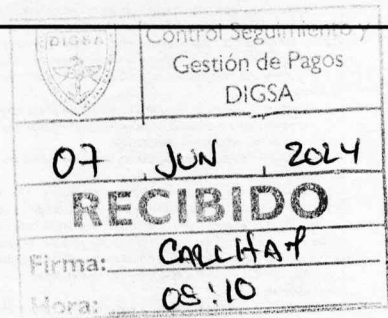 DIGSA
Control Seguimiento y
Gestión de Pagos
DIGSA
07 JUN 2024
RECIBIDO
Firma:
Hora: 08:10